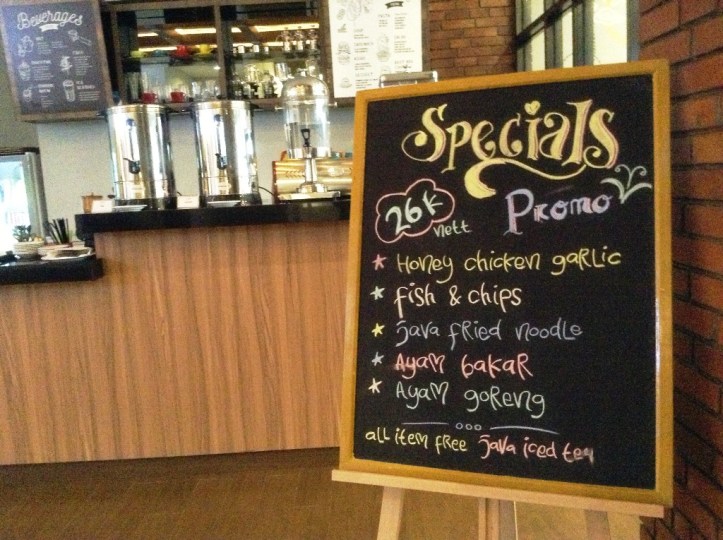 Beverages
Specials
26k nett Promo
Honey chicken garlic
fish & chips
java fried noodle
Ayam bakar
Ayam goreng
all item free java iced tea